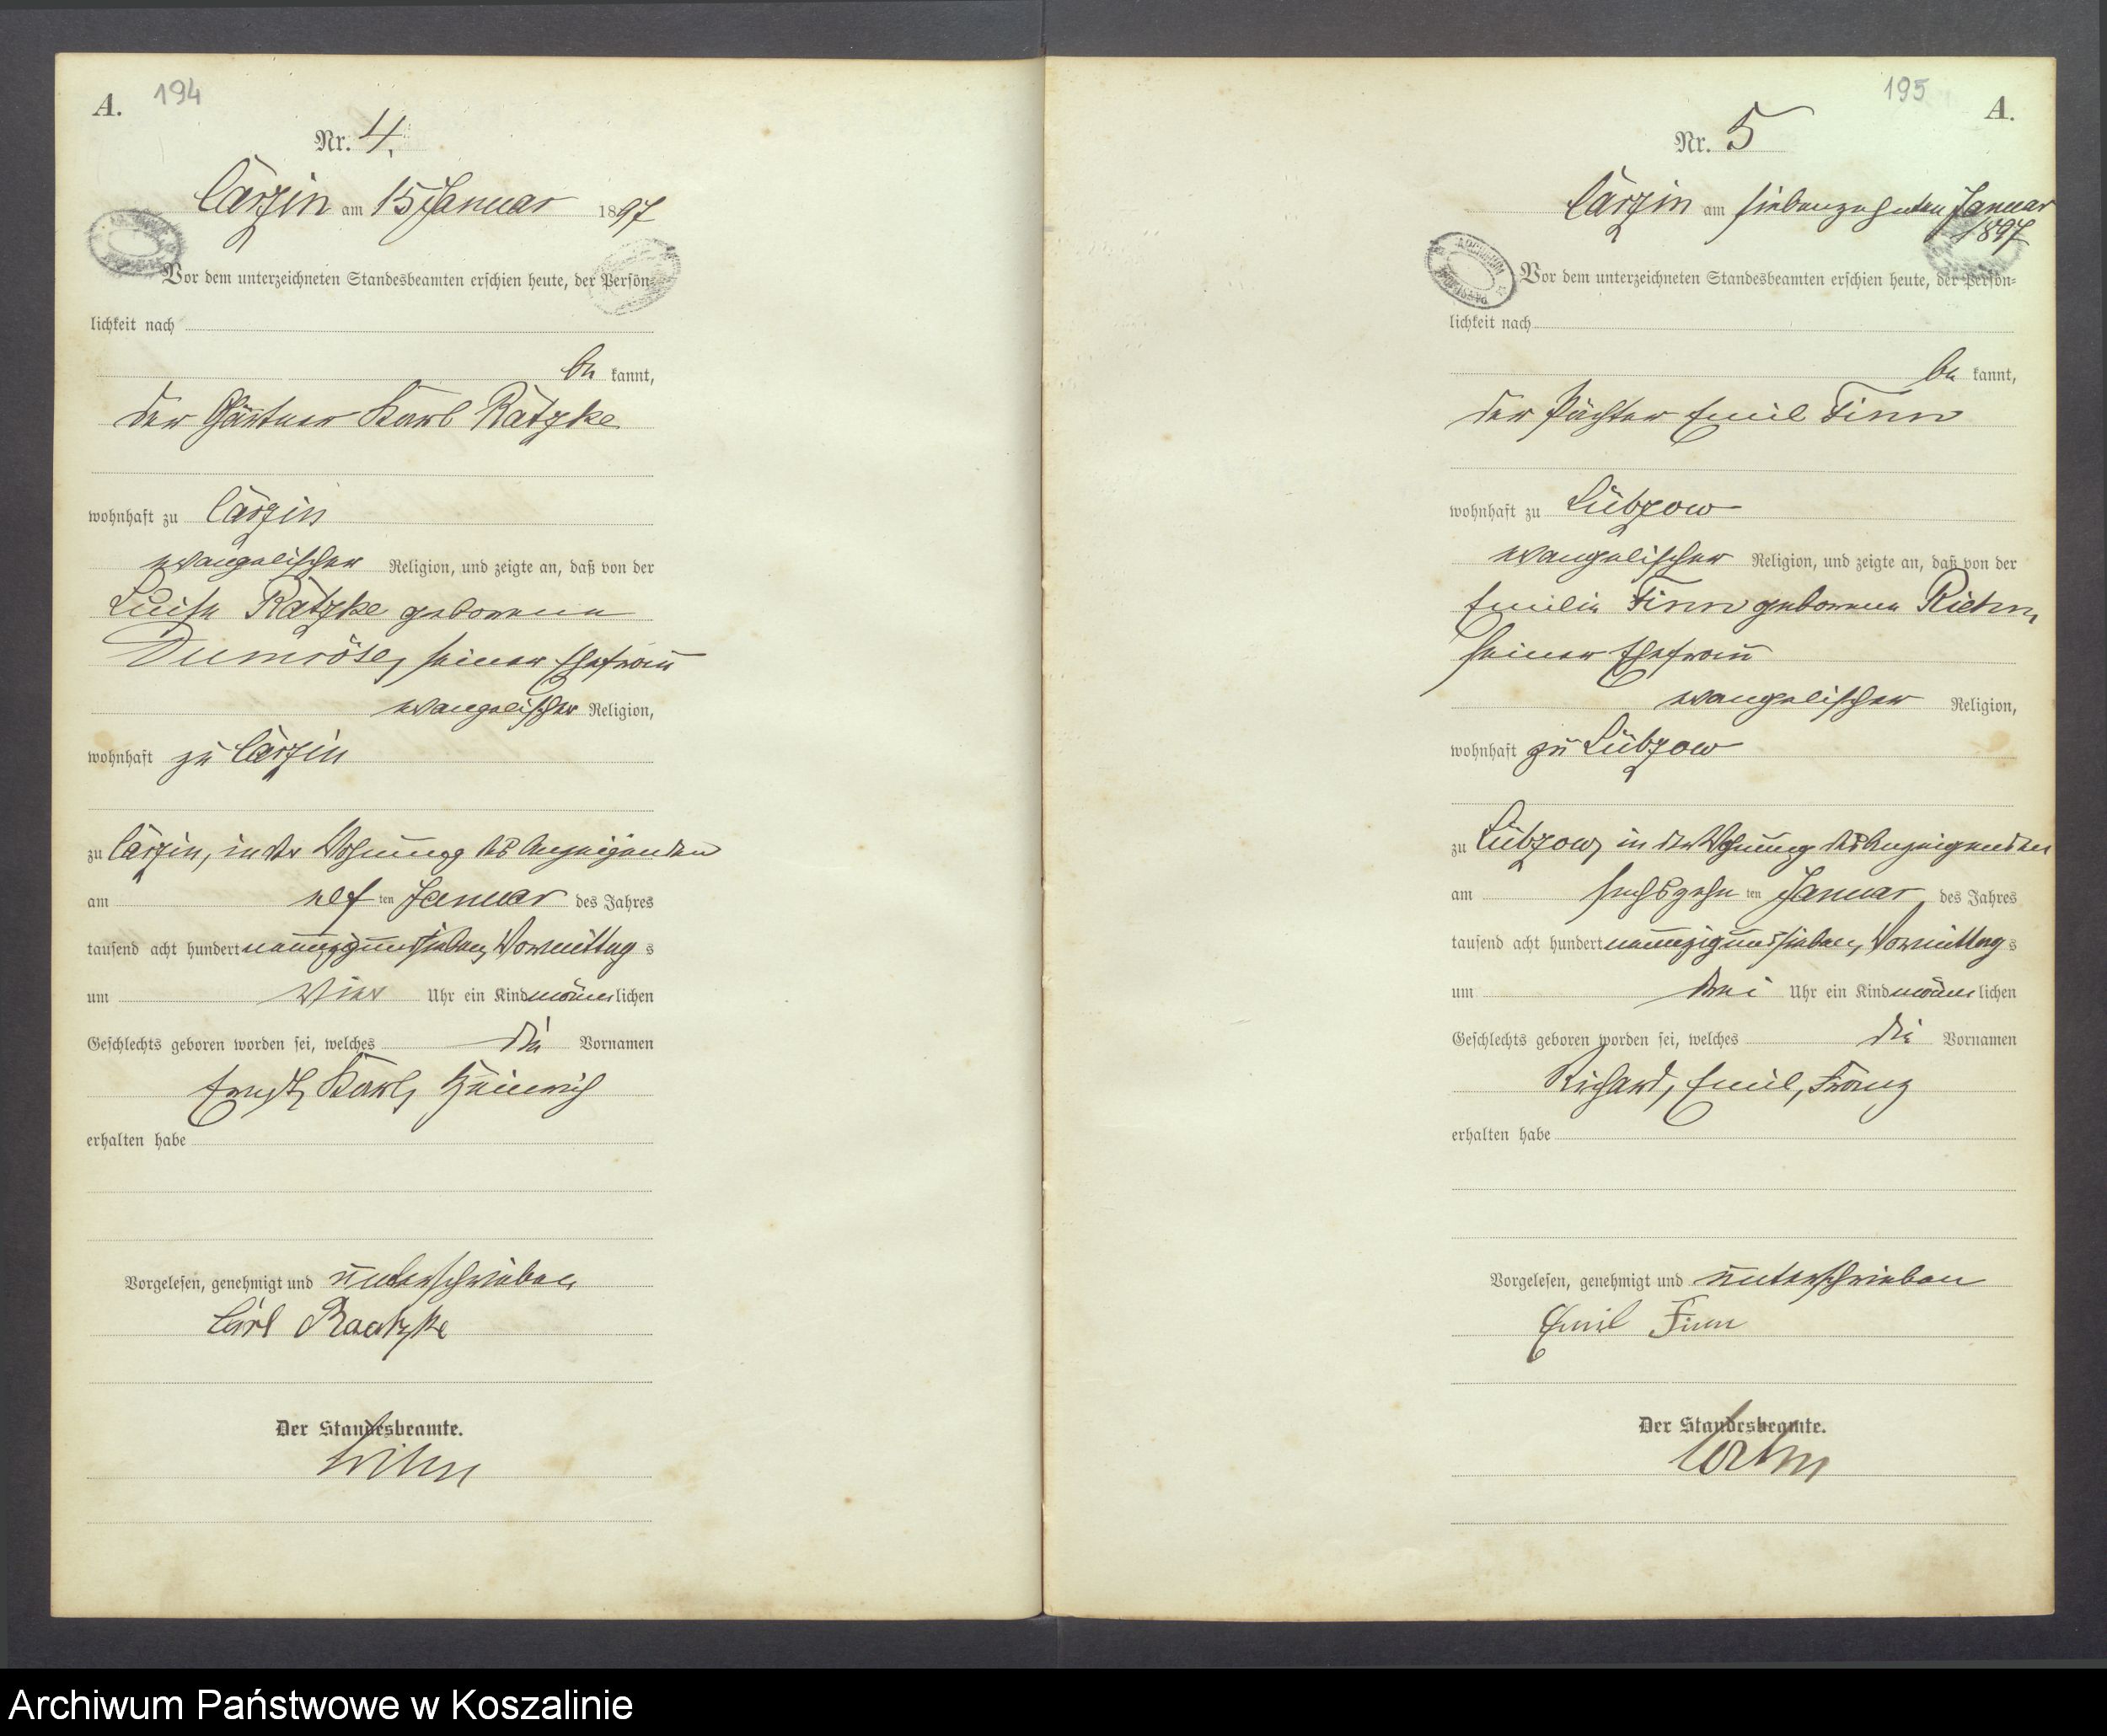 A. 194
Nr. 4.
Carzin am 15 Januar 1897
Vor dem unterzeichneten Standesbeamten erschien heute, der Persön-
lichkeit nach
be kannt,
der Gärtner Karl Ratzke
wohnhaft zu Carzin
evangelischer Religion, und zeigte an, daß von der
Luise Ratzke geborene
Dumröse, seiner Ehefrau
evangelischer Religion,
wohnhaft zu Carzin
zu Carzin, in der Wohnung des Anzeigenden
am elf ten Januar des Jahres
tausend acht hundert neunzig und sieben, Vormittag s
um vier Uhr ein Kind männ lichen
Geschlechts geboren worden sei, welches die Vornamen
Ernst, Karl, Heinrich
erhalten habe
Vorgelesen, genehmigt und unterschrieben
Carl Raatzke
Der Standesbeamte.
195 A.
Nr. 5
Carzin am siebenzehnten Januar
1897
Vor dem unterzeichneten Standesbeamten erschien heute, der Persön-
lichkeit nach
be kannt,
der Pächter Emil Finn
wohnhaft zu Lübzow
evangelischer Religion, und zeigte an, daß von der
Emilie Finn geborene
seiner Ehefrau
evangelischer Religion,
wohnhaft zu Lübzow
zu Lübzow, in der Wohnung des Anzeigenden
am sechszehn ten Januar des Jahres
tausend acht hundert neunzig und sieben, Vormittag s
um drei Uhr ein Kind männ lichen
Geschlechts geboren worden sei, welches die Vornamen
Richard, Emil, Franz
erhalten habe
Vorgelesen, genehmigt und unterschrieben
Emil Finn
Der Standesbeamte.
Archiwum Państwowe w Koszalinie